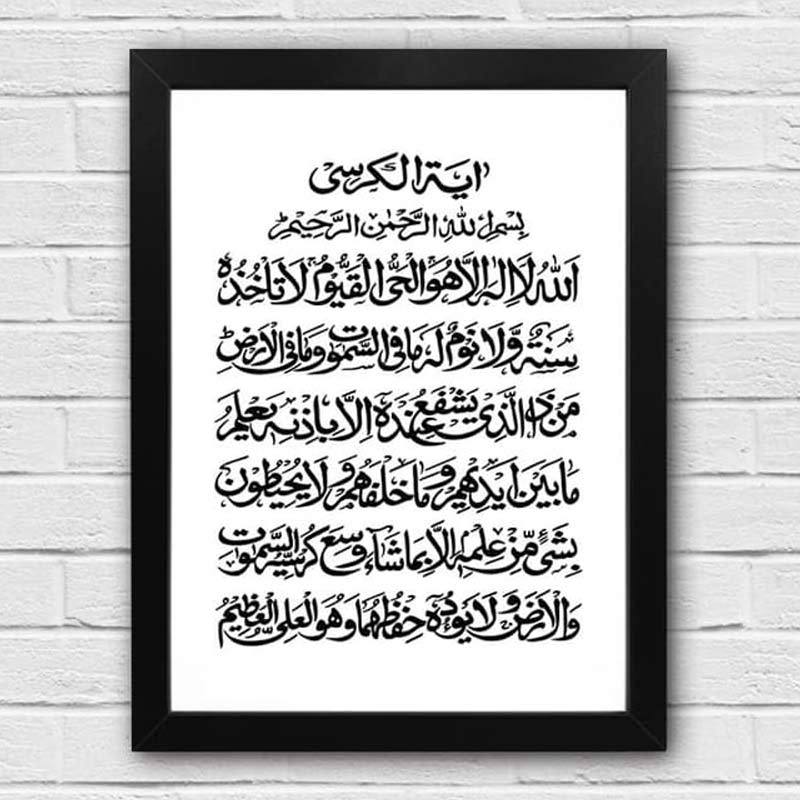 اية الكرسى
بِسْمِ اللهِ الرَّحْمٰنِ الرَّحِيْمِ
اَللهُ لَا اِلٰهَ اِلَّا هُوَ الْحَىُّ الْقَيُّوْمُ لَا تَاْخُذُهٗ
سِنَةٌ وَّلَا نَوْمٌ لَهٗ مَا فِى السَّمٰوٰتِ وَمَا فِى الْاَرْضِ
مَنْ ذَا الَّذِىْ يَشْفَعُ عِنْدَهٗ اِلَّا بِاِذْنِهٖ يَعْلَمُ
مَا بَيْنَ اَيْدِيْهِمْ وَمَا خَلْفَهُمْ وَلَا يُحِيْطُوْنَ
بِشَىْءٍ مِّنْ عِلْمِهٖ اِلَّا بِمَا شَاءَ وَسِعَ كُرْسِيُّهُ السَّمٰوٰتِ
وَالْاَرْضَ وَلَا يَـُٔوْدُهٗ حِفْظُهُمَا وَهُوَ الْعَلِىُّ الْعَظِيْمُ